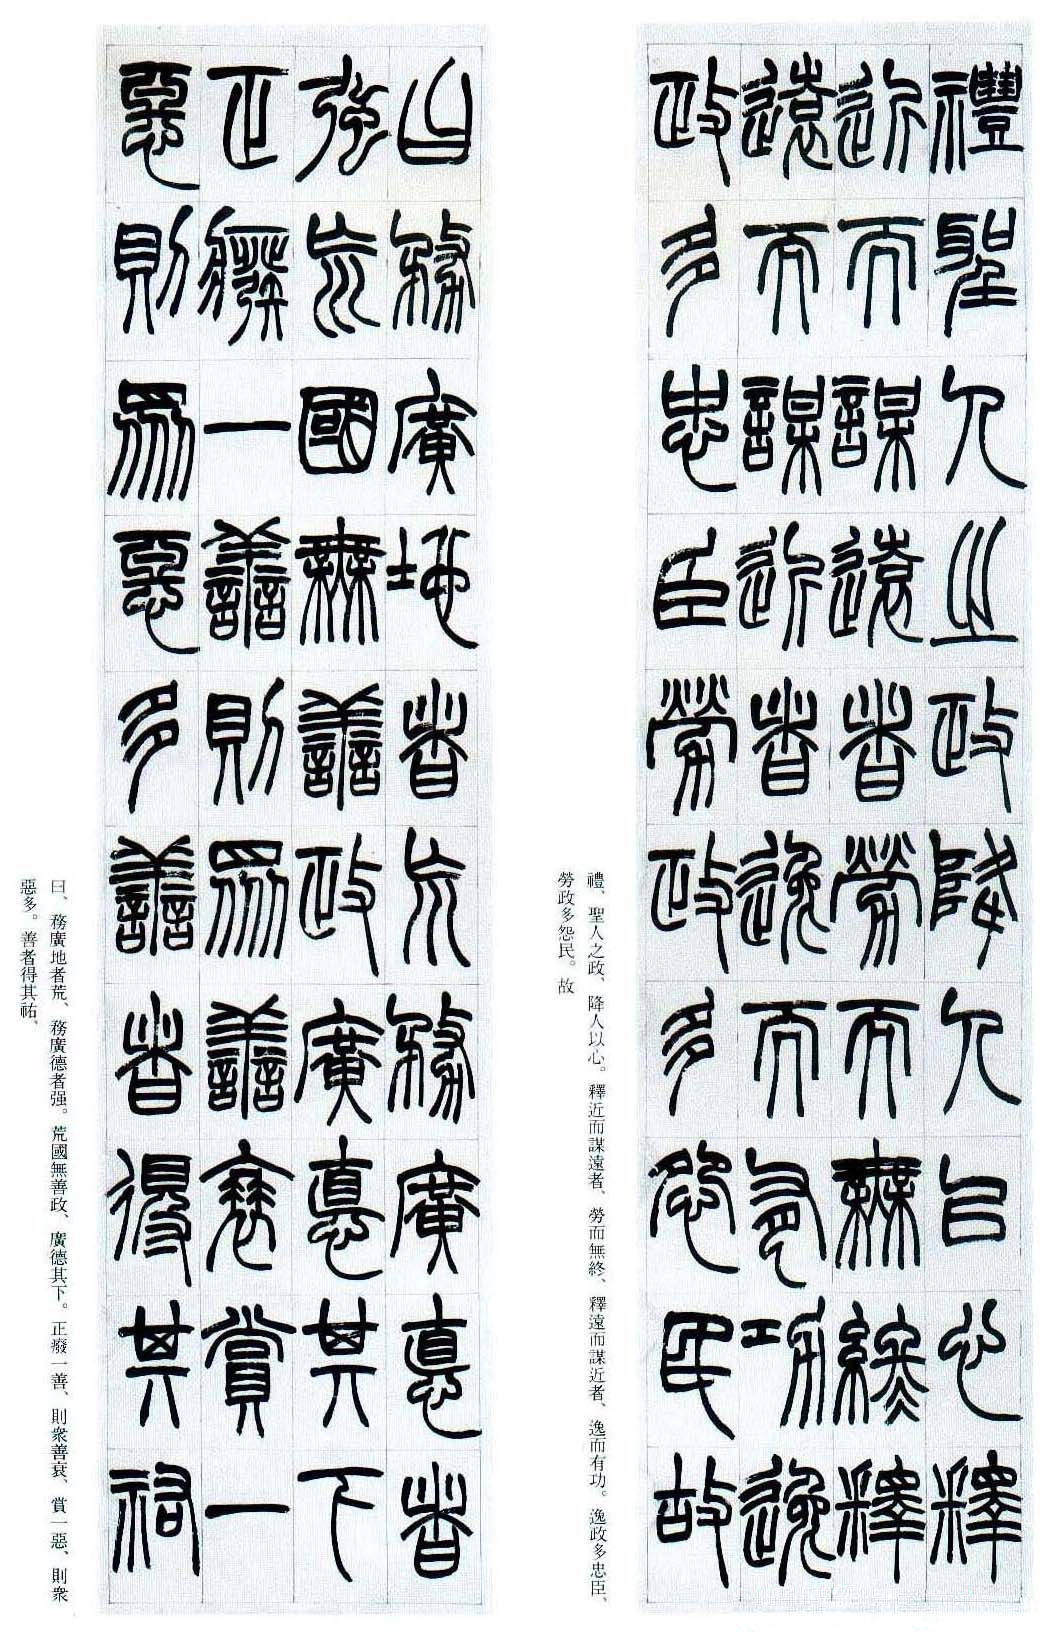 禮聖人之政降人以心釋
近而謀遠者勞而無終釋
遠而謀近者逸而有功逸
政多忠臣勞政多怨民故
禮、聖人之政、降人以心。釋近而謀遠者、勞而無終、釋遠而謀近者、逸而有功。逸政多忠臣、
勞政多怨民。故
曰務廣地者荒務廣德者
强荒國無善政廣德其下
正癈一善則衆善衰賞一
惡則衆惡多善者得其祐
曰、務廣地者荒、務廣德者强。荒國無善政、廣德其下。正癈一善、則衆善衰、賞一惡、則衆
惡多。善者得其祐、